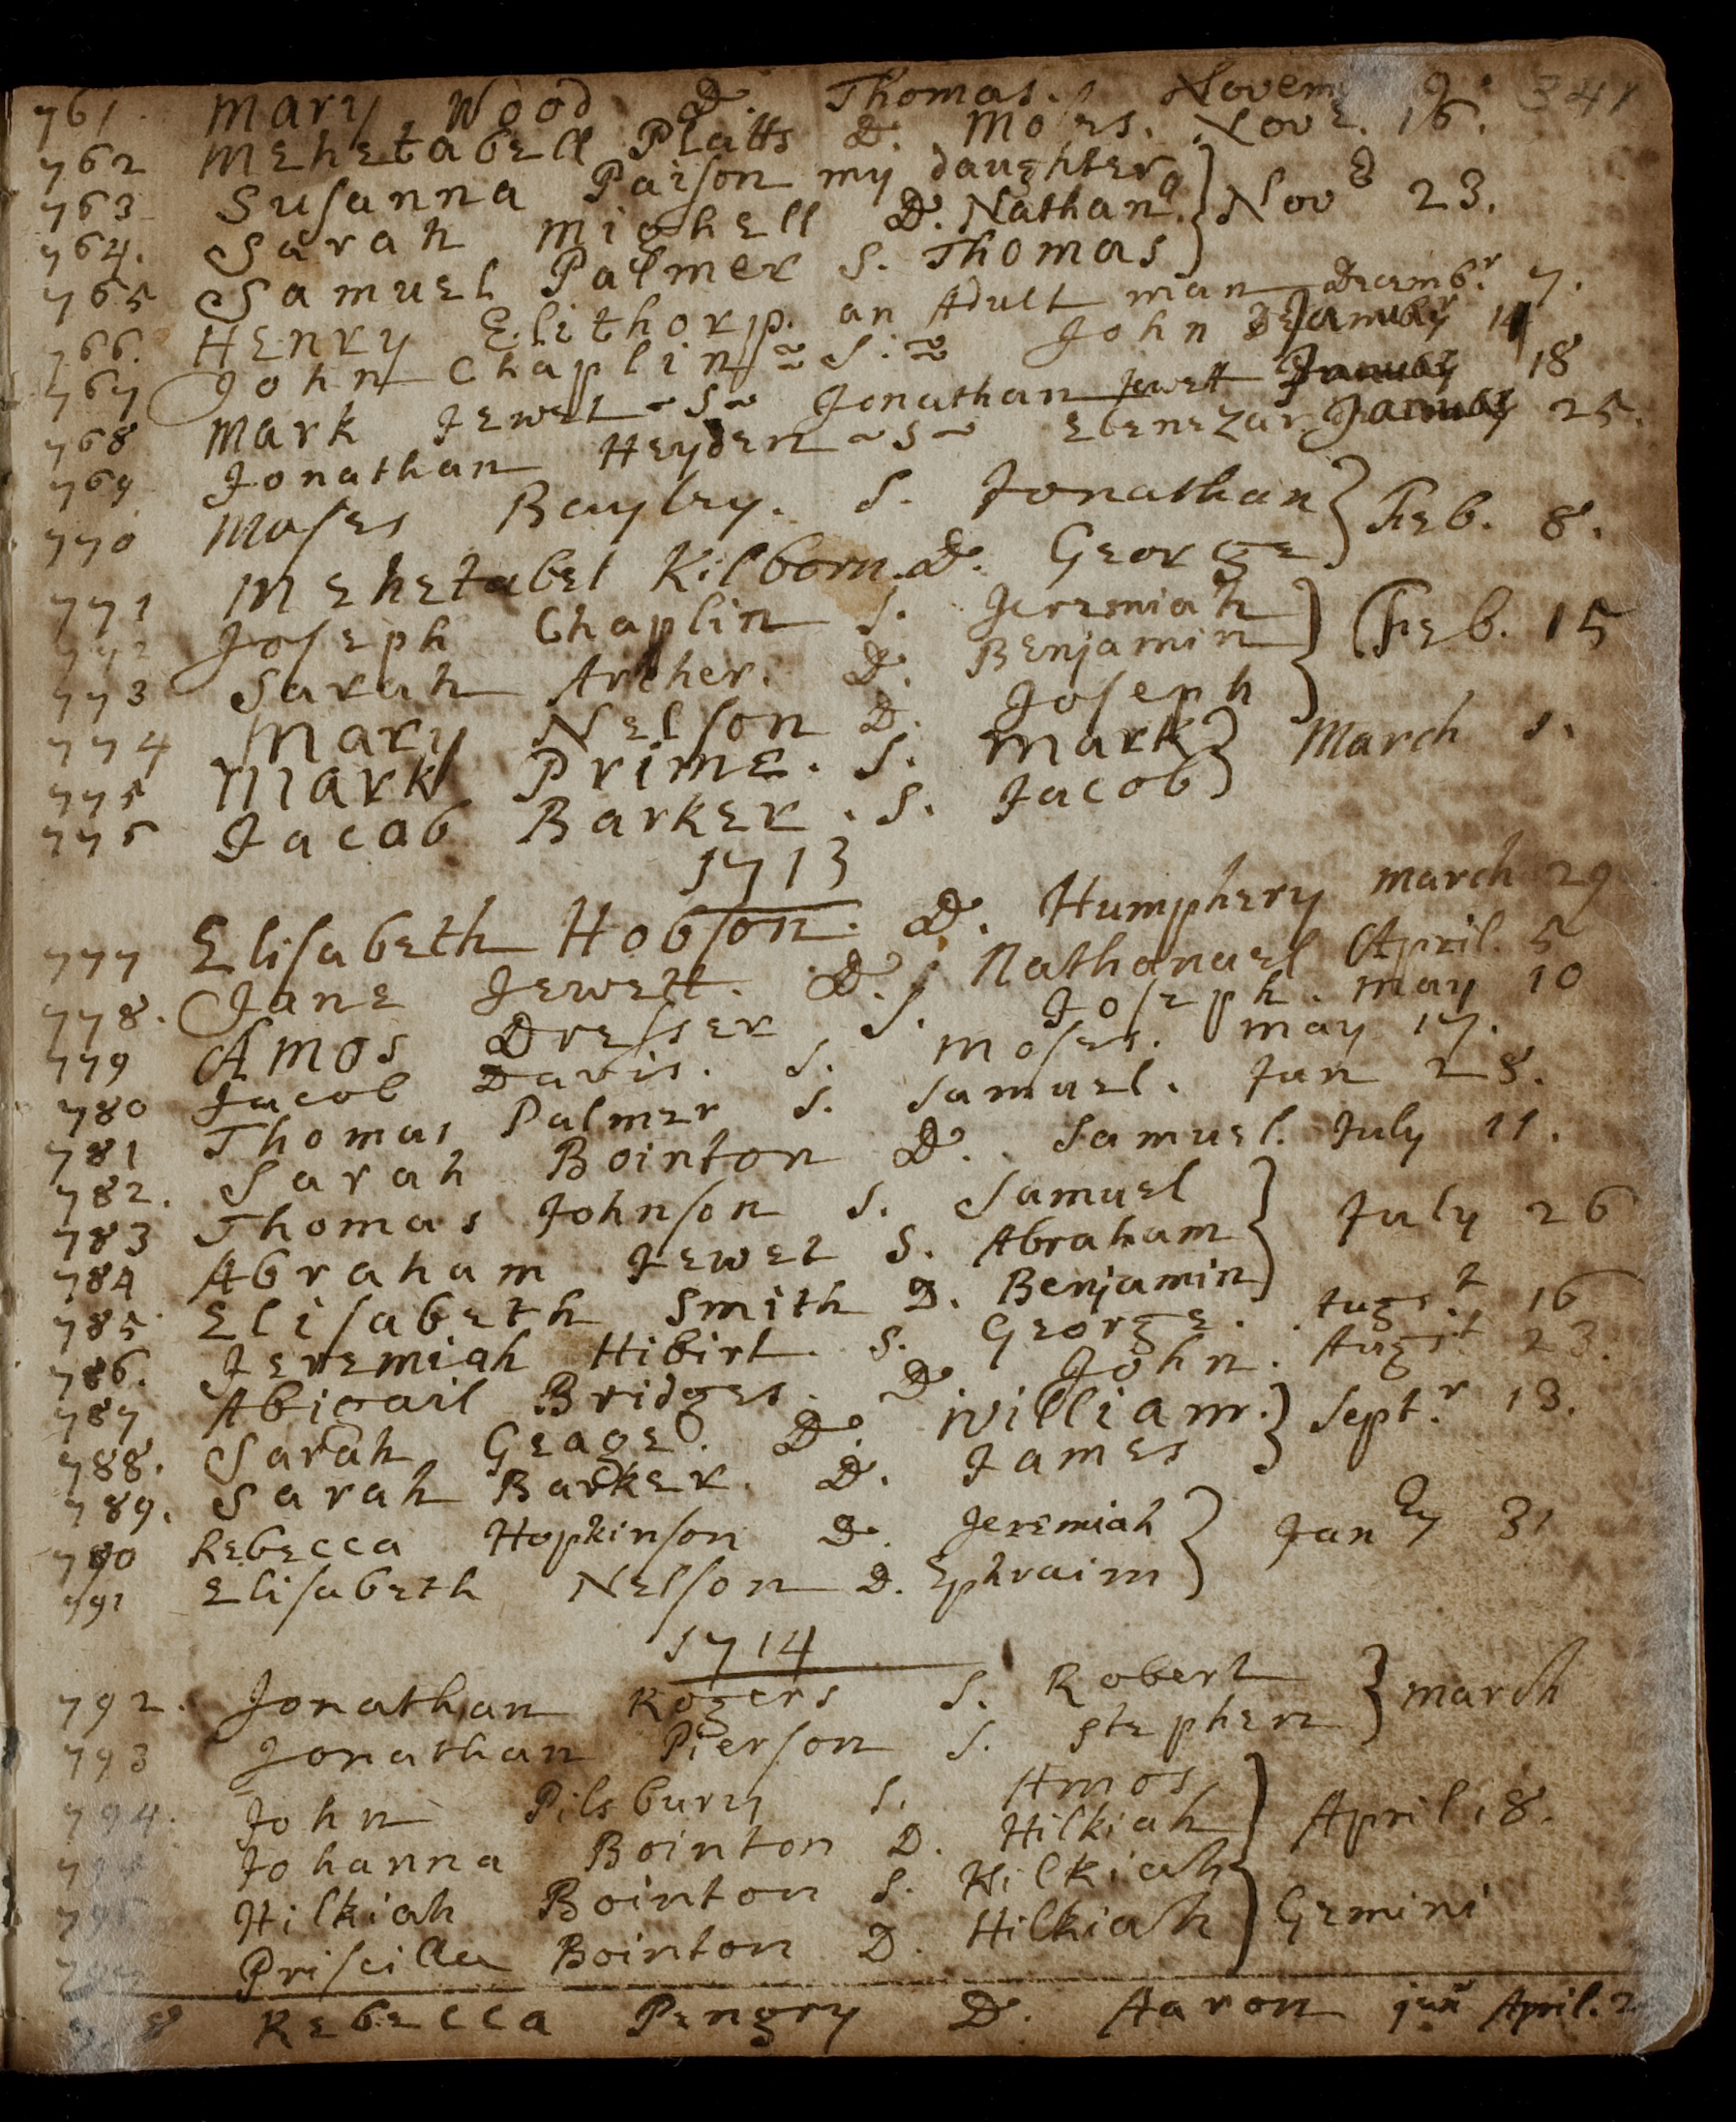 761. Mary Wood D. Thomas. Novem 9. 341
762 Mehetabell Platts D. Moses. Nove. 16.
763 Susanna Paison my daughter
764. Sarah Michell D. Nathanl. } Novr 23.
765 Samuel Palmer S. Thomas
766. Henry Elithorp. an Adult man Decembr. 7.
767 John Chaplin ~ S. ~ John January 11
768 Mark Jewet ~ S ~ Jonathan Jewett January 18
769 Jonathan Heyden ~ S ~ Ebenezar January 25.
770 Moses Bayley. S. Jonathan } Feb. 8.
771 Mehetabel Kilborn. D. George
772 Joseph Chaplin S. Jeremiah } Feb. 15
773 Sarah Archer. D. Benjamin
774 Mary Nelson D. Joseph
775 Mark Prime. S. Mark } March 1.
776 Jacob Barker. S. Jacob
1713
777 Elisabeth Hobson. D. Humphery March 29
778. Jane Jewett. D. Nathanael April. 5
779 Amos Dresser S. Joseph. May 10
780 Jacob Davis. S. Moses. May 17.
781 Thomas Palmer S. Samuel. Jun 28.
782. Sarah Bointon D. Samuel. July 11.
783 Thomas Johnson S. Samuel
784 Abraham Jewet S. Abraham } July 26
785 Elisabeth Smith D. Benjamin
786. Jeremiah Hibirt. S. George. Augst. 16
787 Abigail Bridges. D John. Augst. 23.
788. Sarah Geage. D. William. } Septr. 13.
789. Sarah Barker. D. James
790 Rebecca Hopkinson D. Jeremiah } Jany 31
791 Elisabeth Nelson D. Ephraim
1714
792. Jonathan Rogers S. Robert } March
793 Jonathan Pierson S. Stephen
794. John Pilsbury S. Amos
Johanna Bointon D. Hilkiah } April 18.
Hilkiah Bointon S. Hilkiah
Priscilla Bointon D. Hilkiah } Gemini
8 Rebecca Pengry D. Aaron jun April. 2